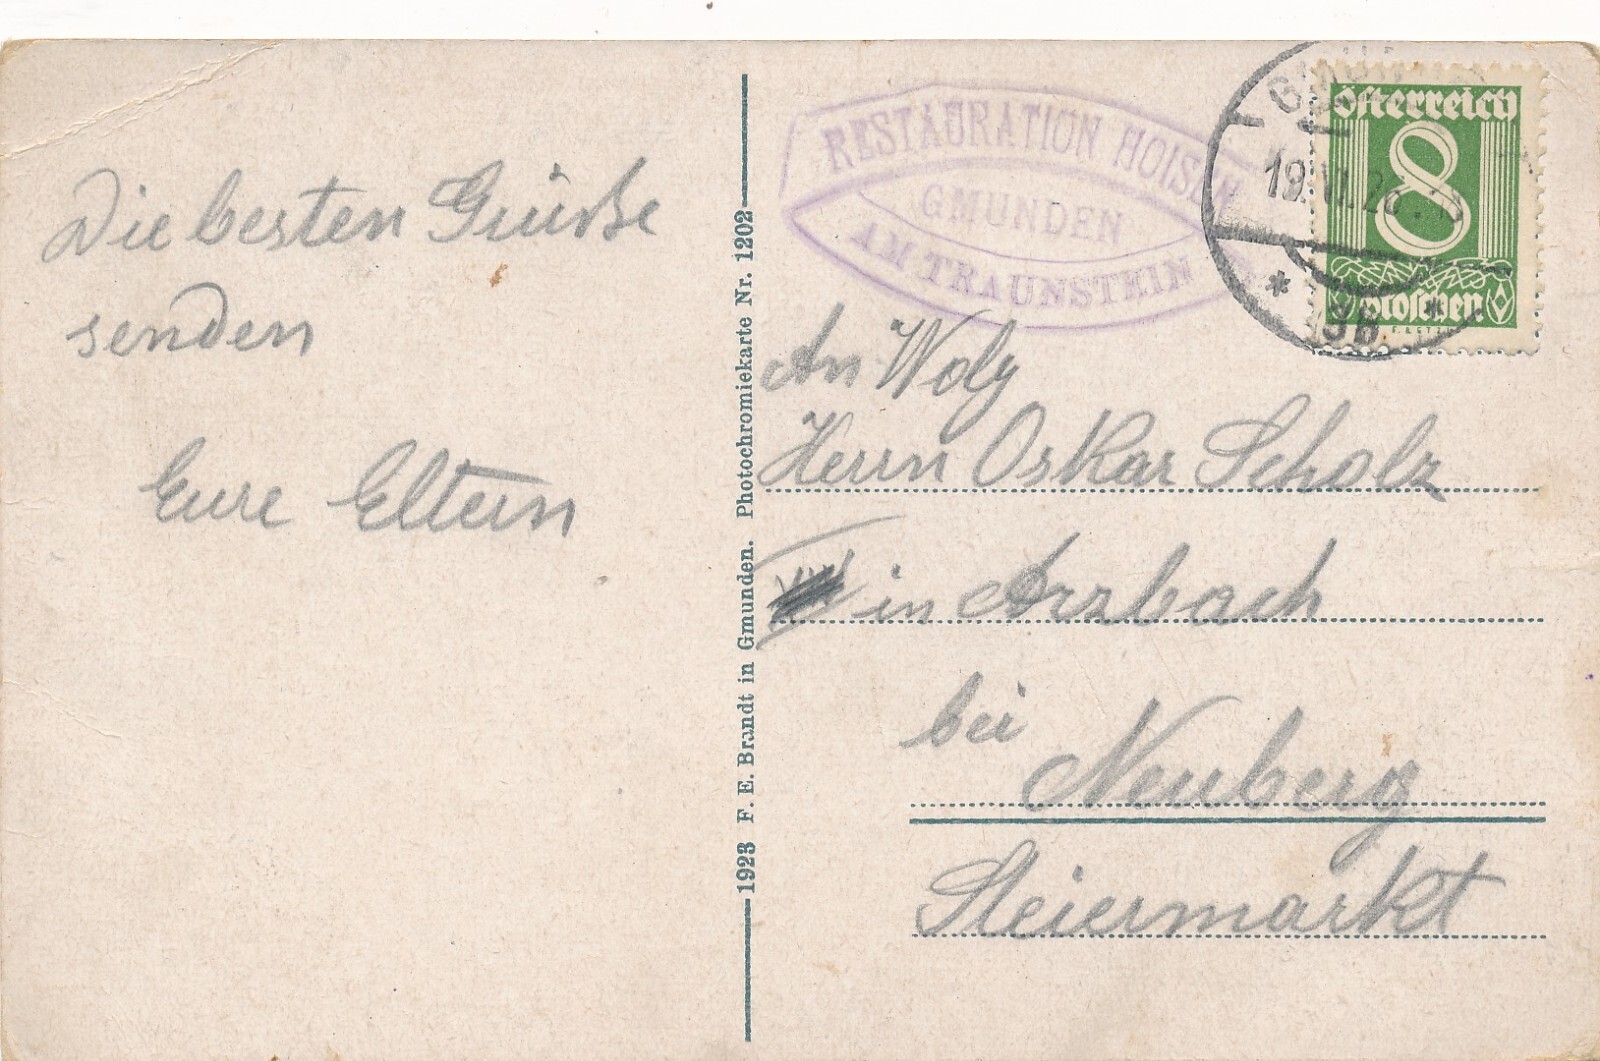 Die besten Grüße
senden
Eure Eltern
1923 F. E. Brandt in Gmunden. Photochromiekarte Nr. 1202
RESTAURATION HOISEN
GMUNDEN
AM TRAUNSTEIN
österreich
8
Groschen
19. VI. 26
3B
An Wolg
Herrn Oskar Scholz
in Arzbach
bei
Neuberg
Steiermarkt